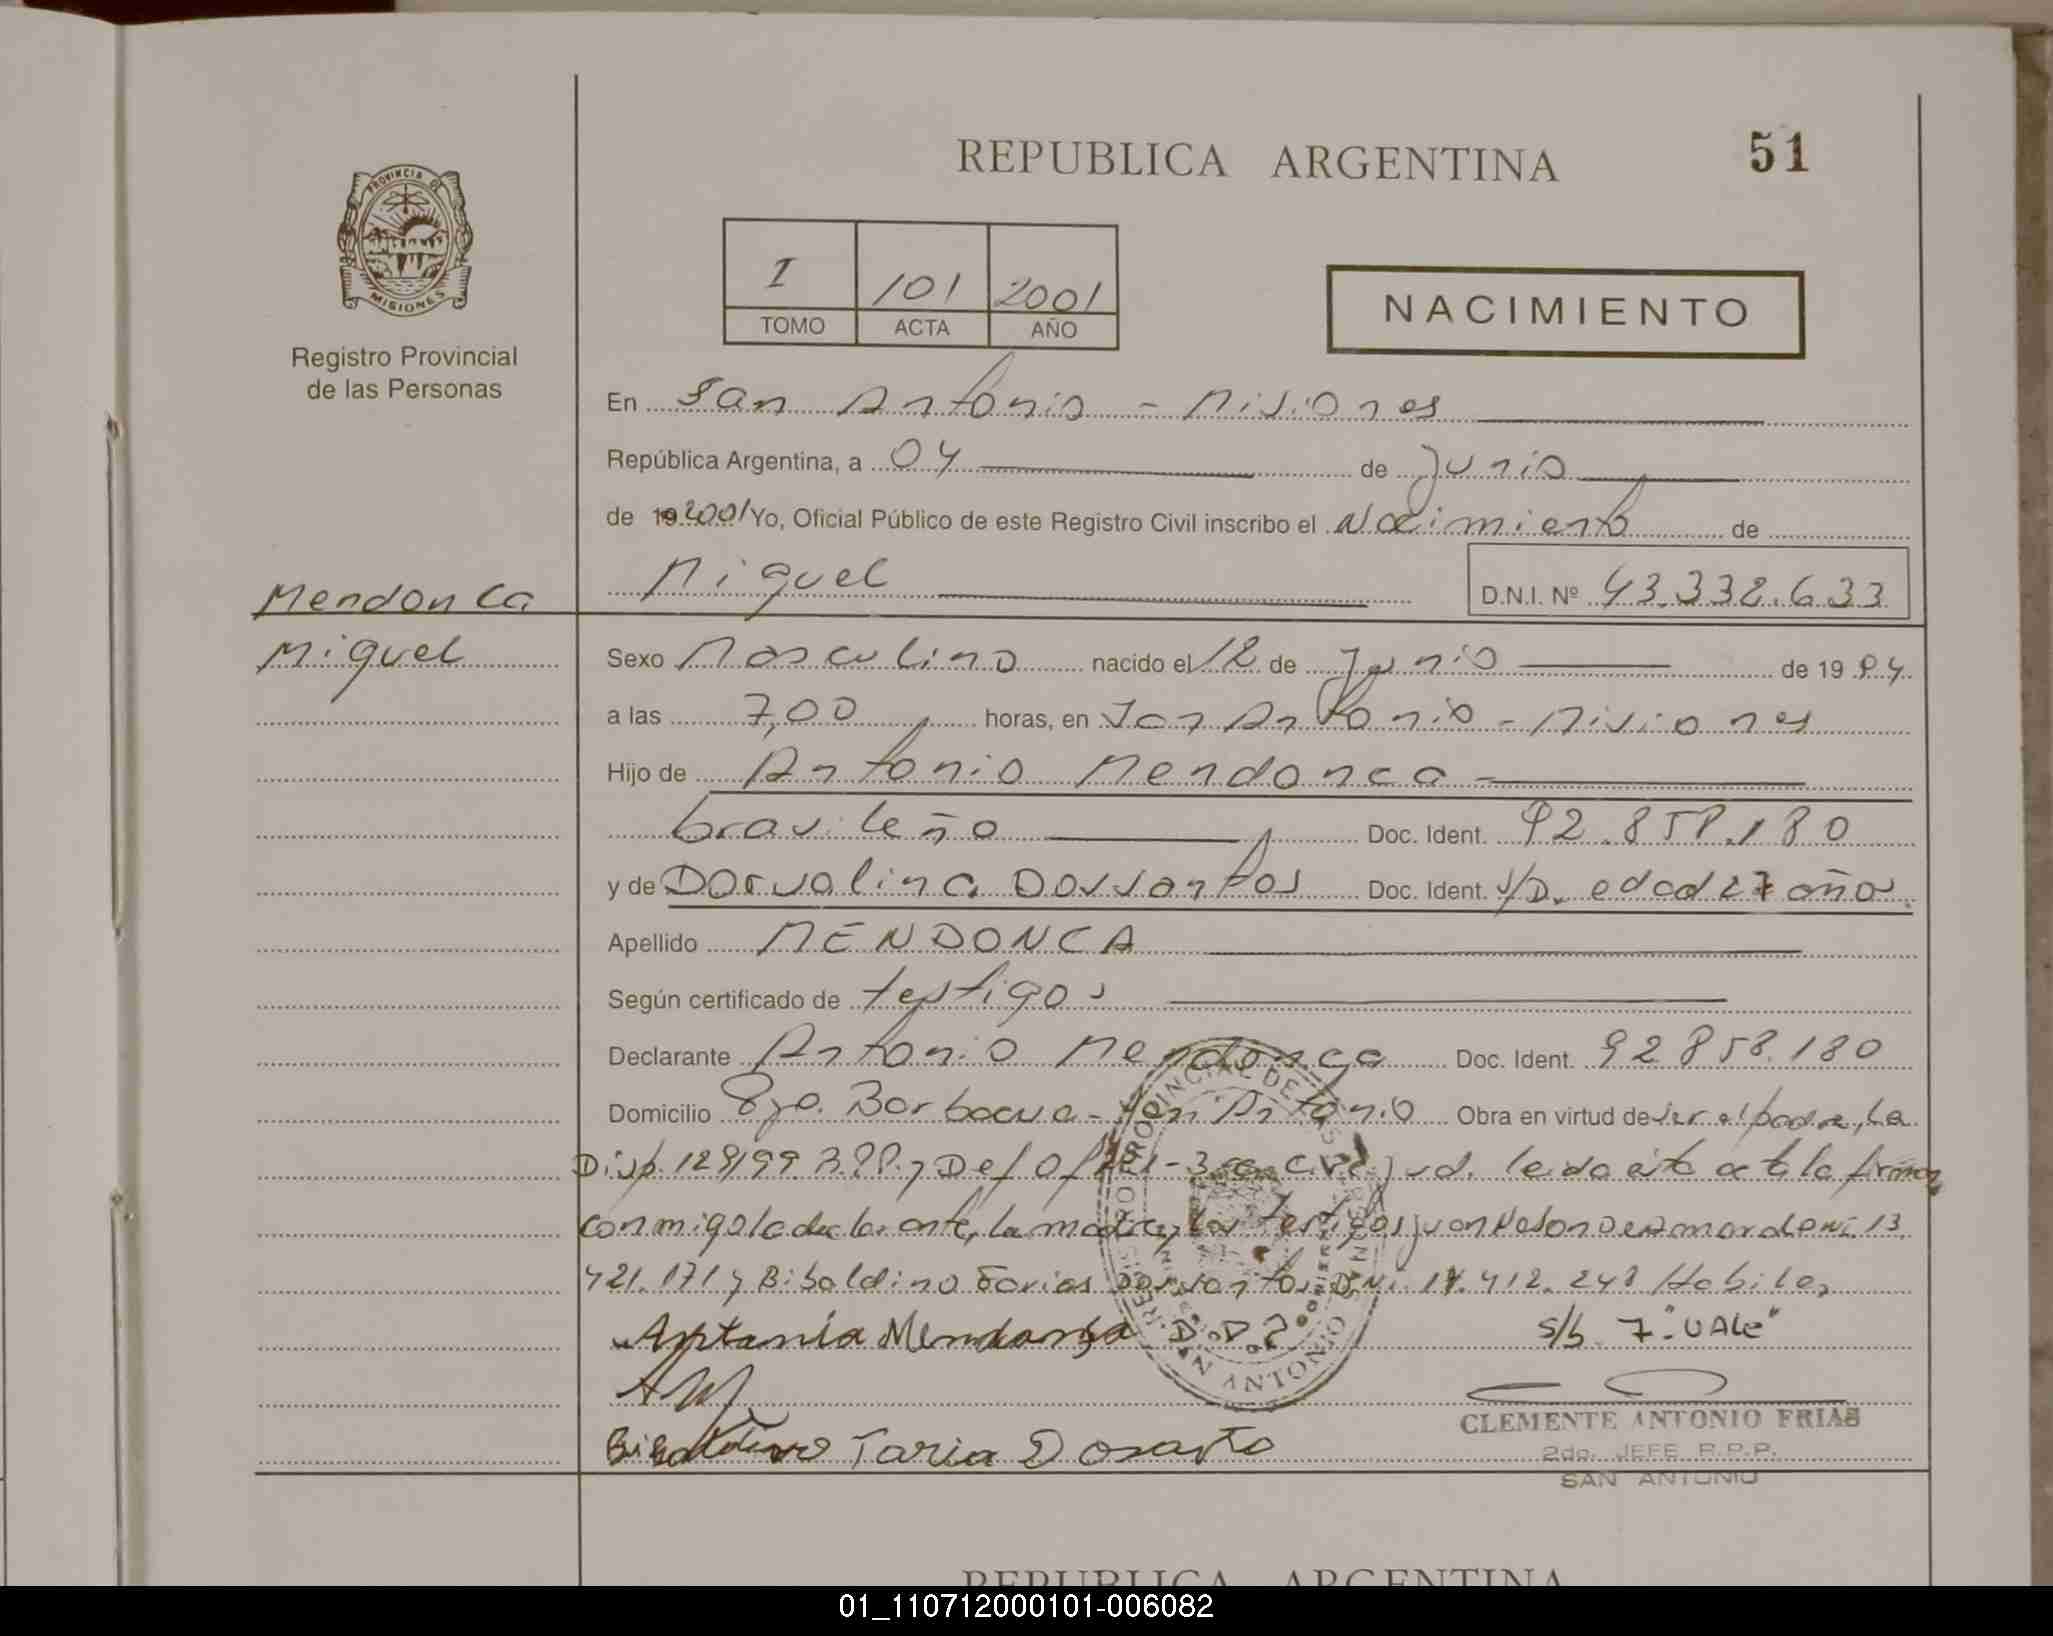 REPUBLICA ARGENTINA
51
PROVINCIA DE
MISIONES
Registro Provincial
de las Personas
I 101 2001
TOMO ACTA AÑO
NACIMIENTO
En San Antonio - Misiones
República Argentina, a 04 de Junio
de 19 2001 Yo, Oficial Público de este Registro Civil inscribo el Nacimiento de
Miguel D.N.I. Nº 43.332.633
Mendonca
Miguel
Sexo Masculino nacido el 12 de Junio de 19 84
a las 7,00 horas, en San Antonio - Misiones
Hijo de Antonio Mendonca
brasileño Doc. Ident. 92.858.180
y de Dorvalina Dossantos Doc. Ident. S/D. edad 27 años
Apellido MENDONCA
Según certificado de testigos
Declarante Antonio Mendonça Doc. Ident. 92.858.180
Domicilio Barbacua - San Antonio Obra en virtud de ser el padre, la
Disp. 128/99 R.P.P. y Def Of leida esta acta la firman
conmigo la declarante, la madre, los testigos Juan DNI. 13.
421.171 y Bibaldino Farias Dossantos DNI. 17.412.248 Habiles
Antania Mendonça
S/b. 7 "VALE"
AM
Bibaldino Faria Dosanto
CLEMENTE ANTONIO FRIAS
2do. JEFE R.P.P.
SAN ANTONIO
REPUBLICA ARGENTINA
01_110712000101-006082